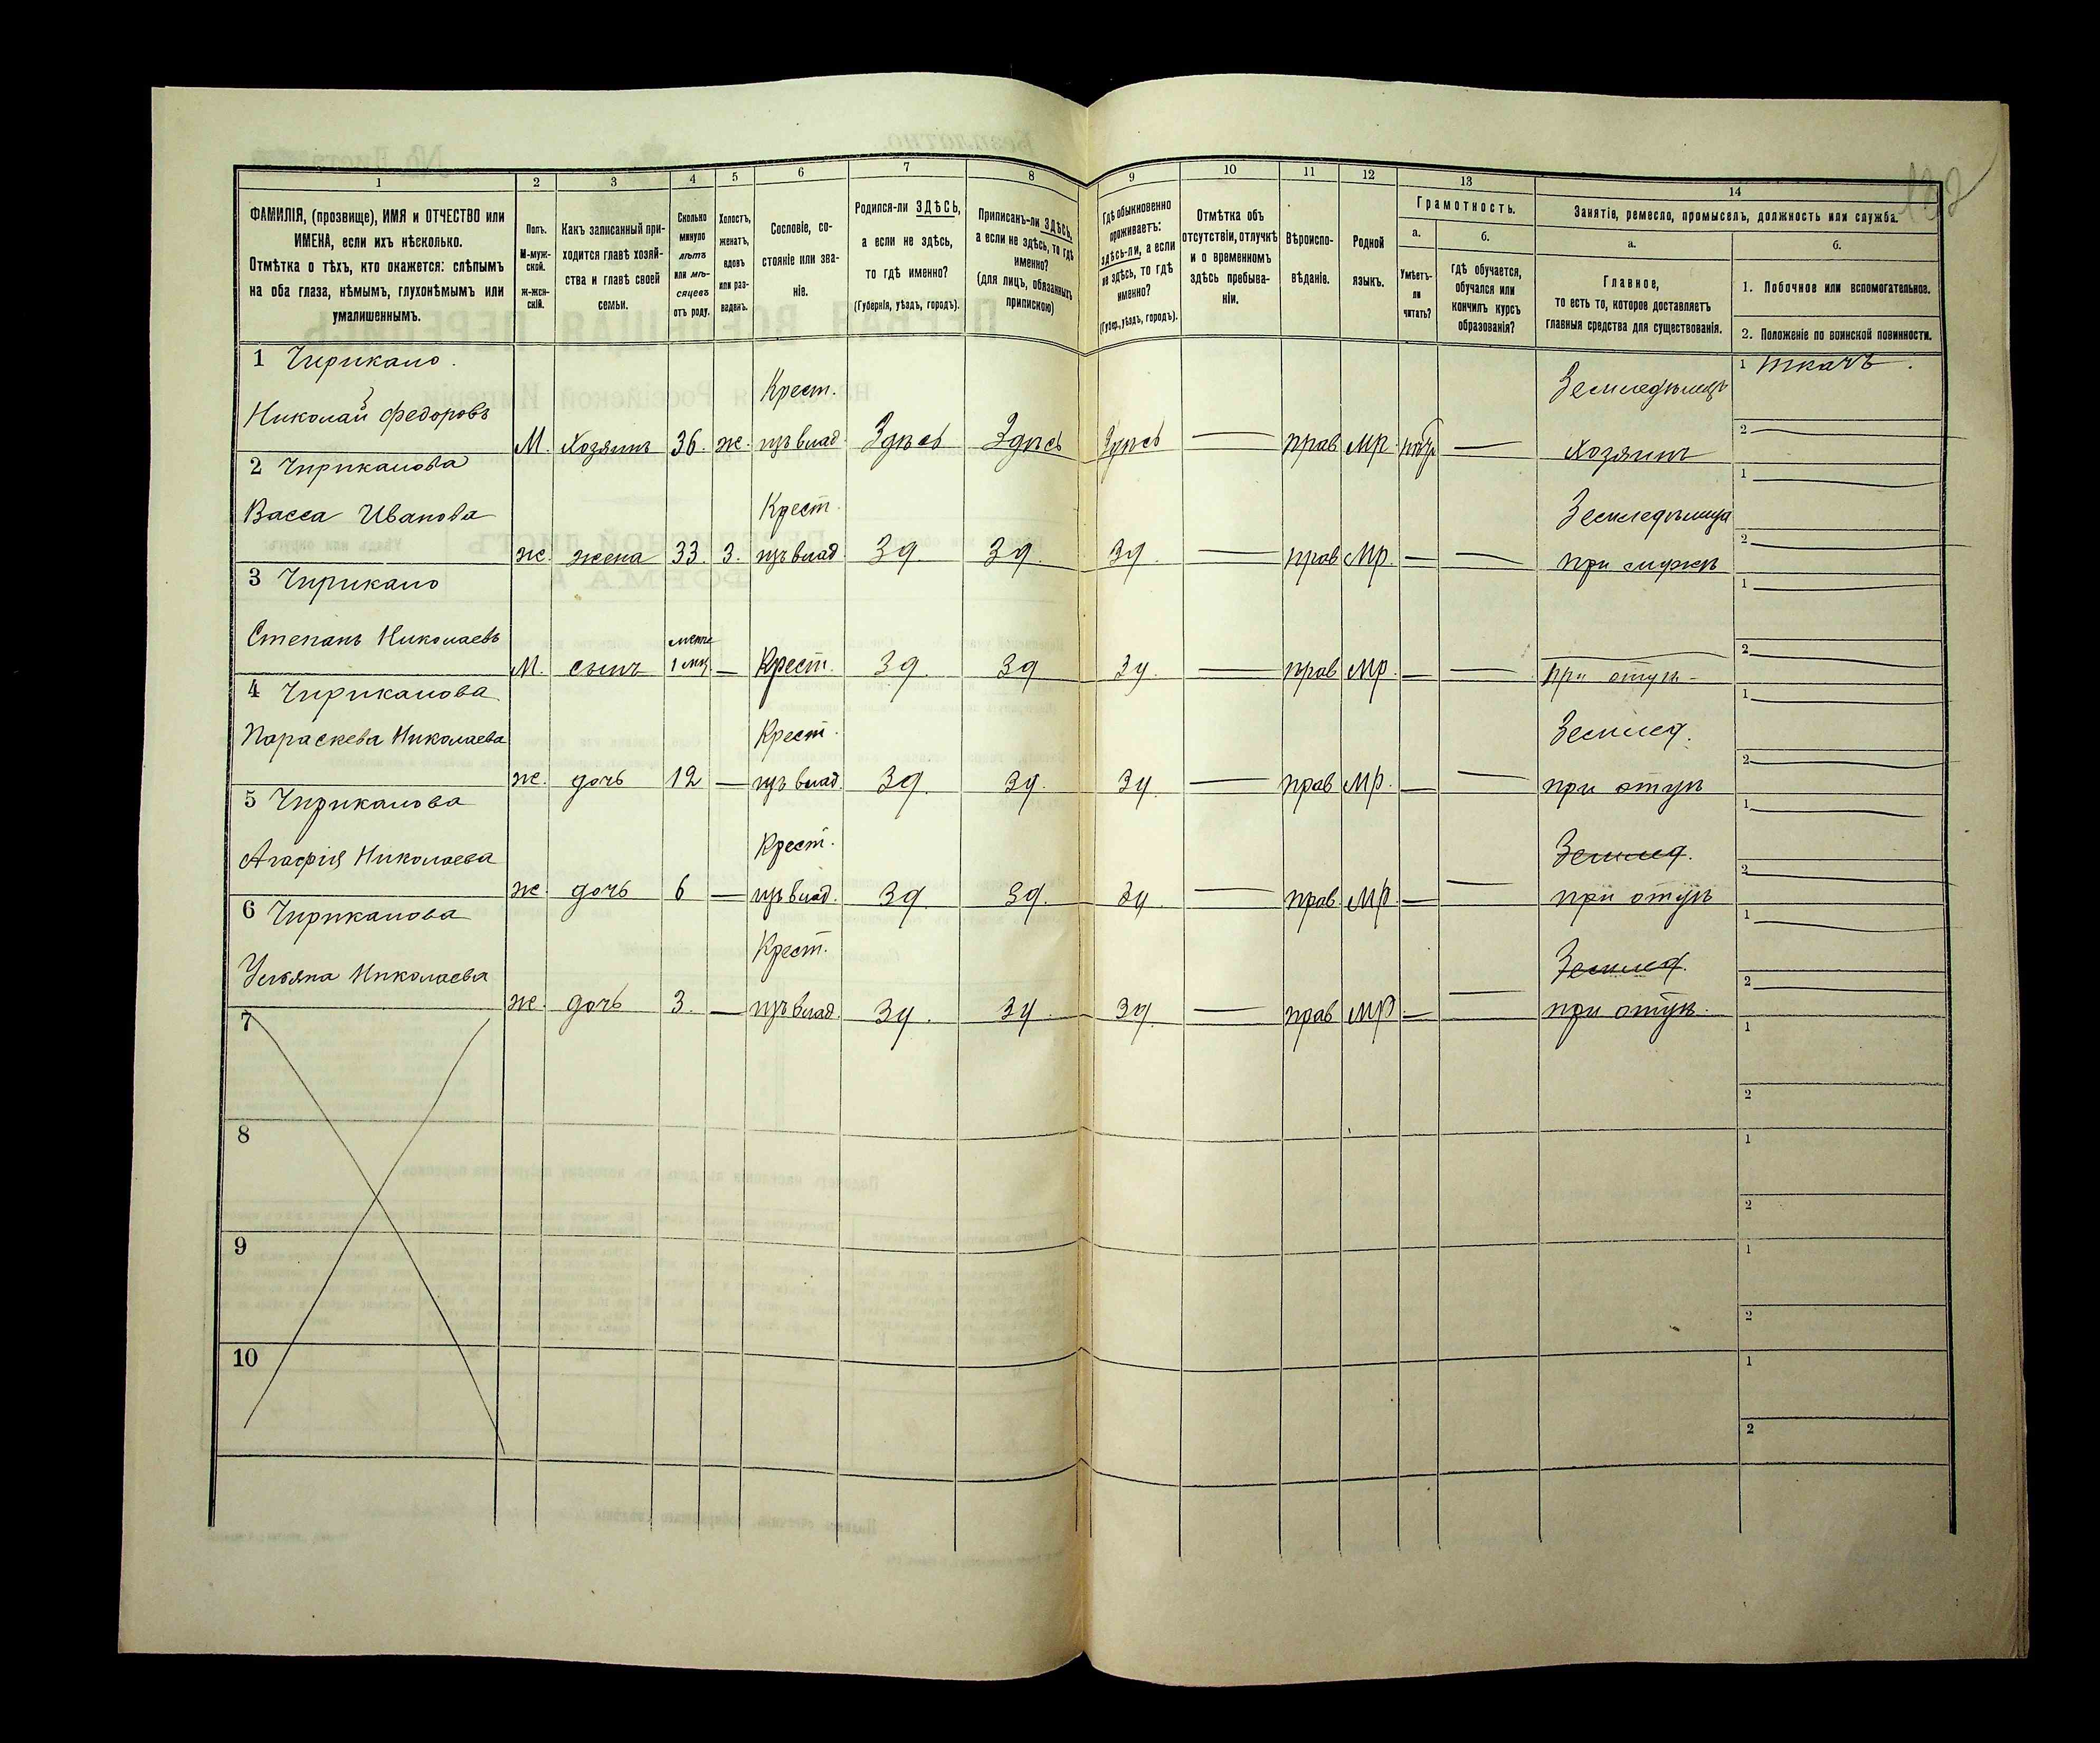 132
1 2 3 4 5 6 7 8 9 10 11 12 13 14
ФАМИЛІЯ, (прозвище), ИМЯ и ОТЧЕСТВО или
ИМЕНА, если ихъ нѣсколько.
Отмѣтка о тѣхъ, кто окажется: слѣпымъ
на оба глаза, нѣмымъ, глухонѣмымъ или
умалишеннымъ.
Полъ.
М-муж-
ской.
ж-жен-
скій.
Какъ записанный при-
ходится главѣ хозяй-
ства и главѣ своей
семьи.
Сколько
минуло
лѣтъ
или мѣ-
сяцевъ
отъ роду.
Холостъ,
женатъ,
вдовъ
или раз-
веденъ.
Сословіе, со-
стояніе или зва-
ніе.
Родился-ли ЗДѢСЬ,
а если не здѣсь,
то гдѣ именно?
(Губернія, уѣздъ, городъ).
Приписанъ-ли ЗДѢСЬ,
а если не здѣсь, то гдѣ
именно?
(для лицъ, обязанныхъ
припискою)
Гдѣ обыкновенно
проживаетъ:
здѣсь-ли, а если
не здѣсь, то гдѣ
именно?
(Губер., уѣздъ, городъ).
Отмѣтка объ
отсутствіи, отлучкѣ
и о временномъ
здѣсь пребыва-
ніи.
Вѣроиспо-
вѣданіе.
Родной
языкъ.
Грамотность.
а.
Умѣетъ-
ли
читать?
б.
гдѣ обучается,
обучался или
кончилъ курсъ
образованія?
Занятіе, ремесло, промыселъ, должность или служба.
а.
Главное,
то есть то, которое доставляетъ
главныя средства для существованія.
б.
1. Побочное или вспомогательное.
2. Положеніе по воинской повинности.
1 Чирикало.
Крест. Земледѣлецъ 1 ткачъ.
Николай Федоровъ
М. Хозяинъ 36. ж. изъ влад. Здѣсь Здѣсь Здѣсь — прав. Мр. — Хозяинъ 2 —
2 Чирикалова 1 —
Васса Иванова Крест. Земледѣлица
ж. жена 33. З. изъ влад. Зд. Зд. Зд. — прав. Мр. — — при мужѣ 2 —
3 Чирикало 1 —
Степанъ Николаевъ
М. сынъ 1 мц — Крест. Зд. Зд Зд. — прав. Мр. — — при отцѣ 2 —
4 Чирикалова 1 —
Параскева Николаева Крест. Землед.
ж. дочь 12 — изъ влад. Зд. Зд. Зд. — прав. Мр. — — при отцѣ 2 —
5 Чирикалова 1 —
Агафія Николаева Крест. Землед.
ж. дочь 6 — изъ влад. Зд. Зд. Зд. — прав. Мр. — — при отцѣ 2 —
6 Чирикалова 1 —
Ульяна Николаева Крест. Землед.
ж. дочь 3. — изъ влад. Зд. Зд. Зд. — прав. Мр. — — при отцѣ. 2
7 1
2
8 1
2
9 1
2
10 1
2